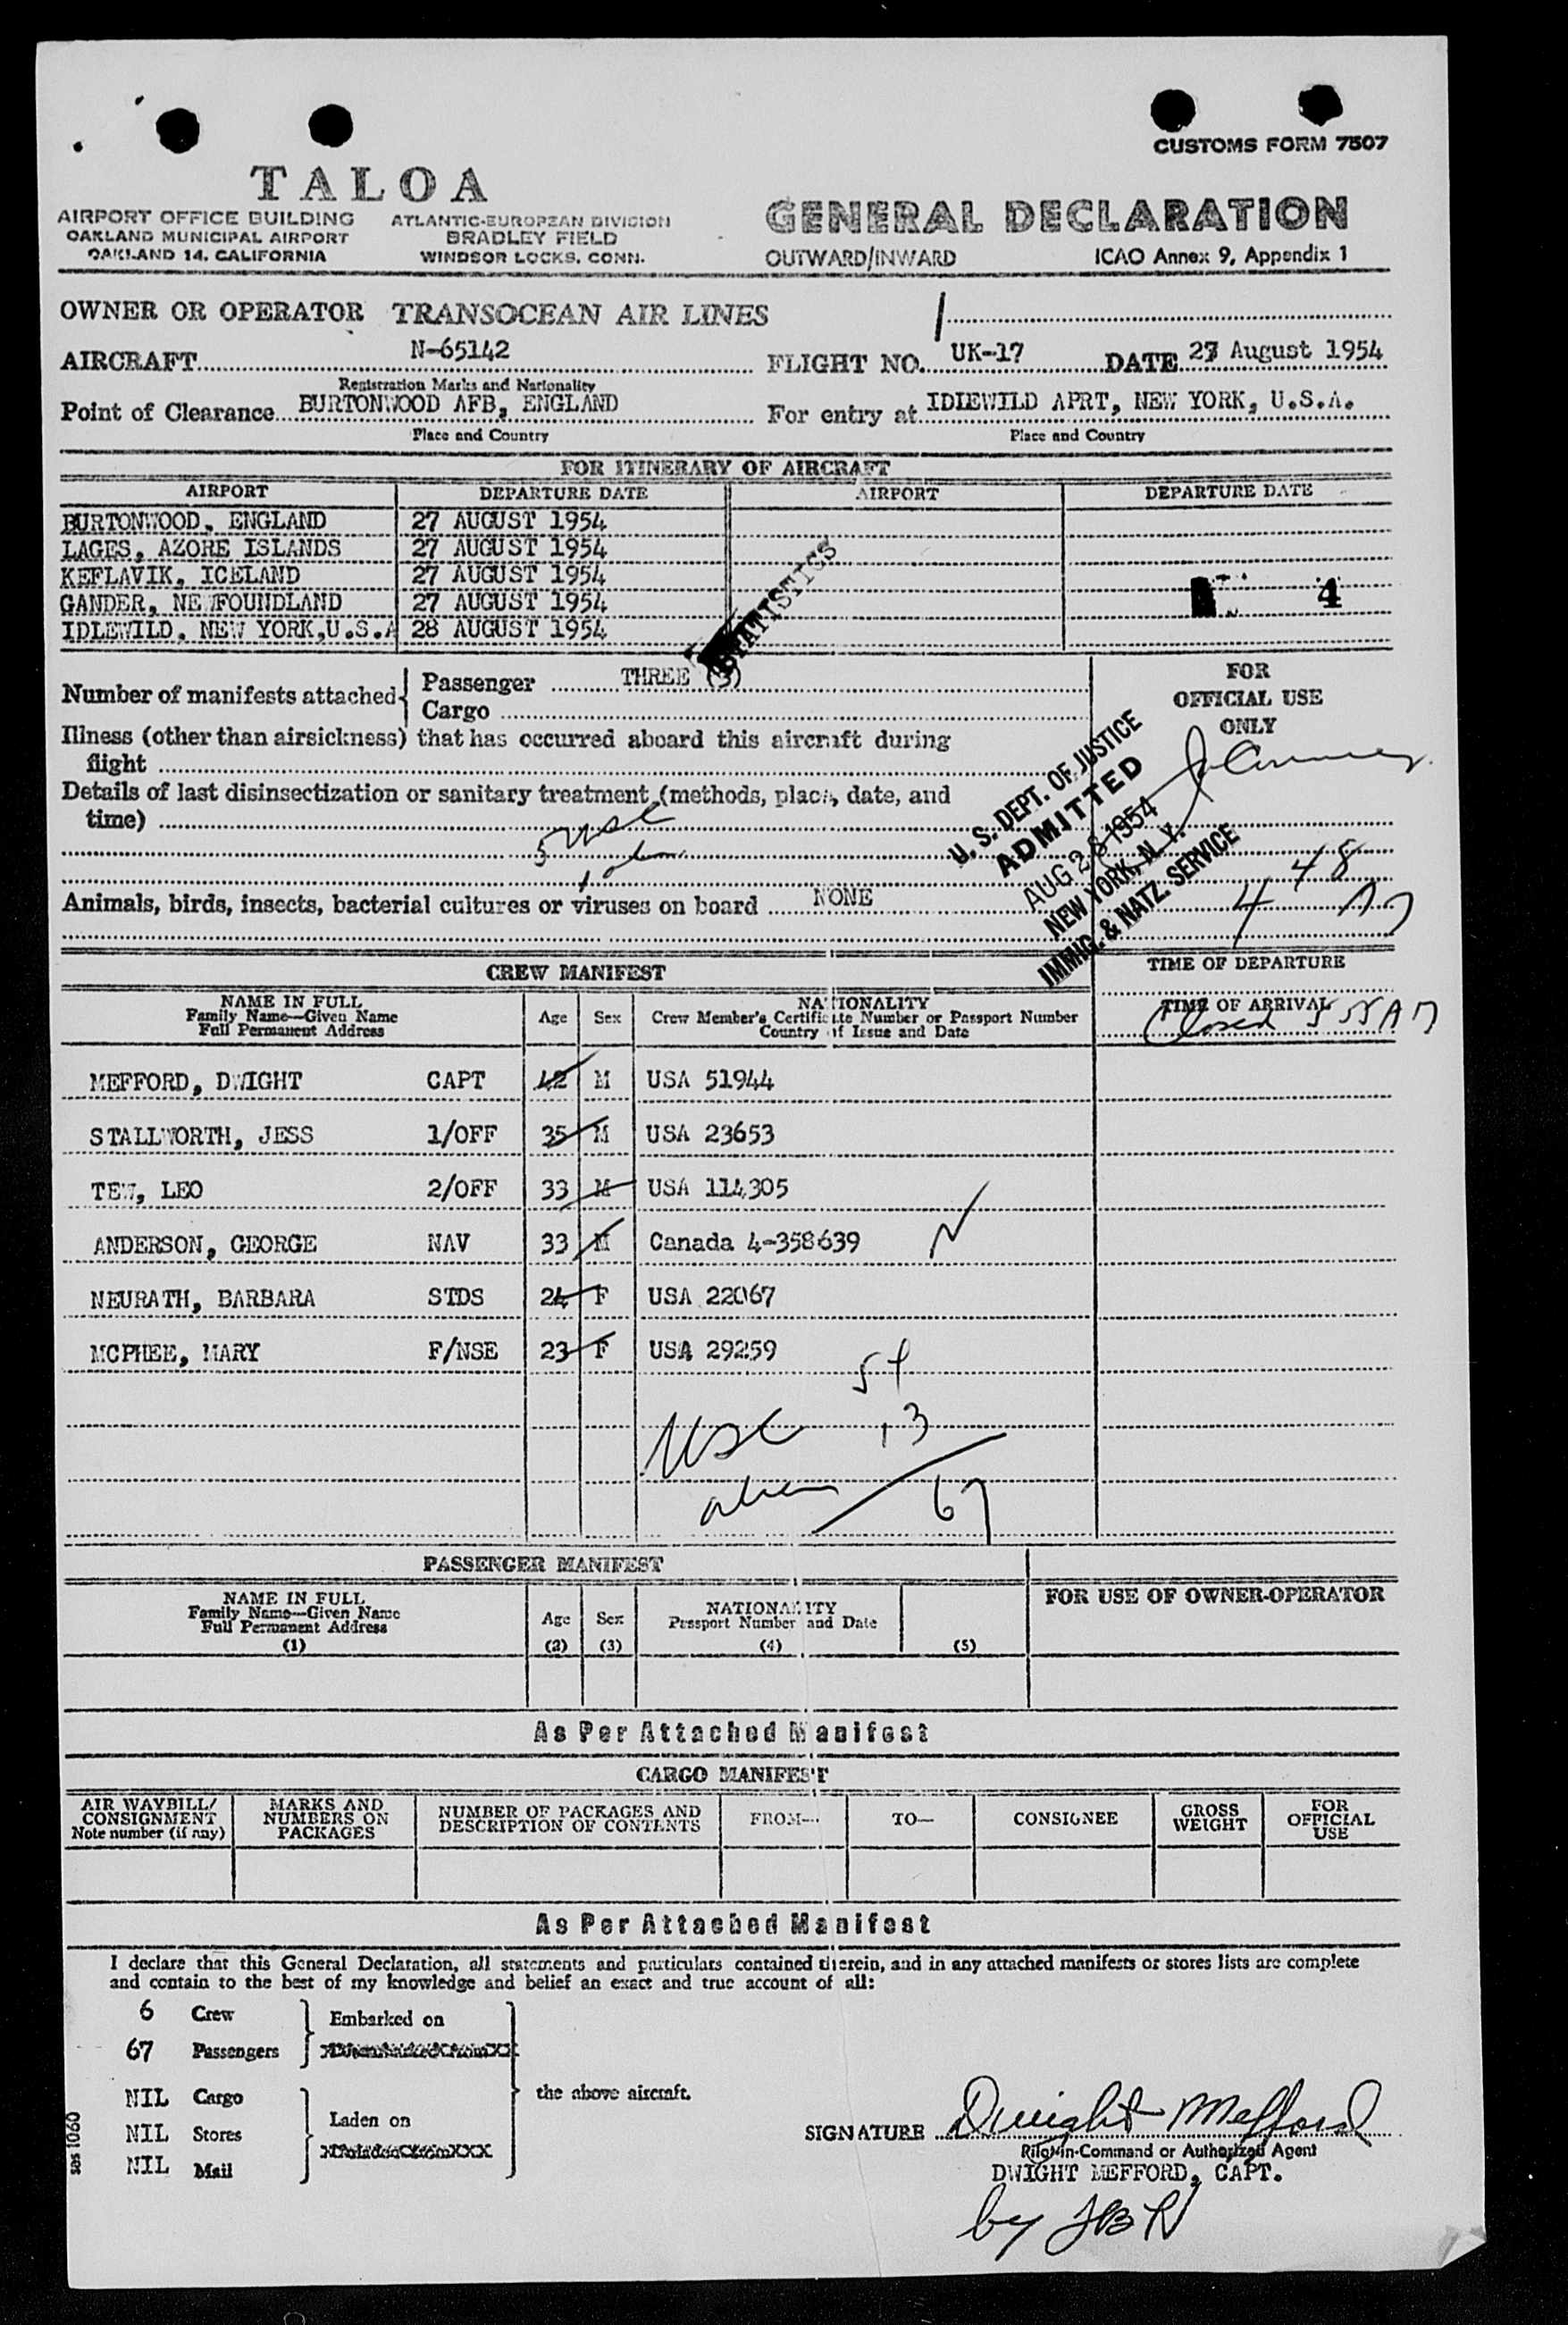 CUSTOMS FORM 7507
TALOA
AIRPORT OFFICE BUILDING
OAKLAND MUNICIPAL AIRPORT
OAKLAND 14, CALIFORNIA
ATLANTIC-EUROPEAN DIVISION
BRADLEY FIELD
WINDSOR LOCKS, CONN.
GENERAL DECLARATION
OUTWARD/INWARD ICAO Annex 9, Appendix 1
OWNER OR OPERATOR TRANSOCEAN AIR LINES
AIRCRAFT N-65142 FLIGHT NO. UK-17 DATE 27 August 1954
Registration Marks and Nationality
Point of Clearance BURTONWOOD AFB, ENGLAND For entry at IDLEWILD APRT, NEW YORK, U.S.A.
Place and Country Place and Country
FOR ITINERARY OF AIRCRAFT
AIRPORT DEPARTURE DATE AIRPORT DEPARTURE DATE
BURTONWOOD, ENGLAND 27 AUGUST 1954
LAGES, AZORE ISLANDS 27 AUGUST 1954
KEFLAVIK, ICELAND 27 AUGUST 1954
GANDER, NEWFOUNDLAND 27 AUGUST 1954
IDLEWILD, NEW YORK,U.S.A 28 AUGUST 1954
STATISTICS
4
Number of manifests attached
Passenger THREE (3)
Cargo
FOR
OFFICIAL USE
ONLY
Illness (other than airsickness) that has occurred aboard this aircraft during
flight
Details of last disinsectization or sanitary treatment (methods, place, date, and
time)
5 USC
1 alien
U. S. DEPT. OF JUSTICE
ADMITTED
AUG 28 1954
NEW YORK, N. Y.
IMMIG. & NATZ. SERVICE
4 48
4 AM
Animals, birds, insects, bacterial cultures or viruses on board NONE
CREW MANIFEST
TIME OF DEPARTURE
TIME OF ARRIVAL
Closed 5 55 AM
NAME IN FULL
Family Name—Given Name
Full Permanent Address
Age Sex
NATIONALITY
Crew Member's Certificate Number or Passport Number
Country of Issue and Date
MEFFORD, DWIGHT CAPT 42 M USA 51944
STALLWORTH, JESS 1/OFF 35 M USA 23653
TEW, LEO 2/OFF 33 M USA 114305
ANDERSON, GEORGE NAV 33 M Canada 4-358639
NEURATH, BARBARA STDS 24 F USA 22067
MCPHEE, MARY F/NSE 23 F USA 29259
USC 54
alien 13
67
PASSENGER MANIFEST
NAME IN FULL
Family Name—Given Name
Full Permanent Address
(1)
Age
(2)
Sex
(3)
NATIONALITY
Passport Number and Date
(4)
(5)
FOR USE OF OWNER-OPERATOR
As Per Attached Manifest
CARGO MANIFEST
AIR WAYBILL/
CONSIGNMENT
Note number (if any)
MARKS AND
NUMBERS ON
PACKAGES
NUMBER OF PACKAGES AND
DESCRIPTION OF CONTENTS
FROM—
TO—
CONSIGNEE
GROSS
WEIGHT
FOR
OFFICIAL
USE
As Per Attached Manifest
I declare that this General Declaration, all statements and particulars contained therein, and in any attached manifests or stores lists are complete
and contain to the best of my knowledge and belief an exact and true account of all:
6 Crew
67 Passengers
Embarked on
NIL Cargo
NIL Stores
NIL Mail
Laden on
the above aircraft.
SIGNATURE Dwight Mefford
Pilot-in-Command or Authorized Agent
DWIGHT MEFFORD, CAPT.
by JBN
sos 1060